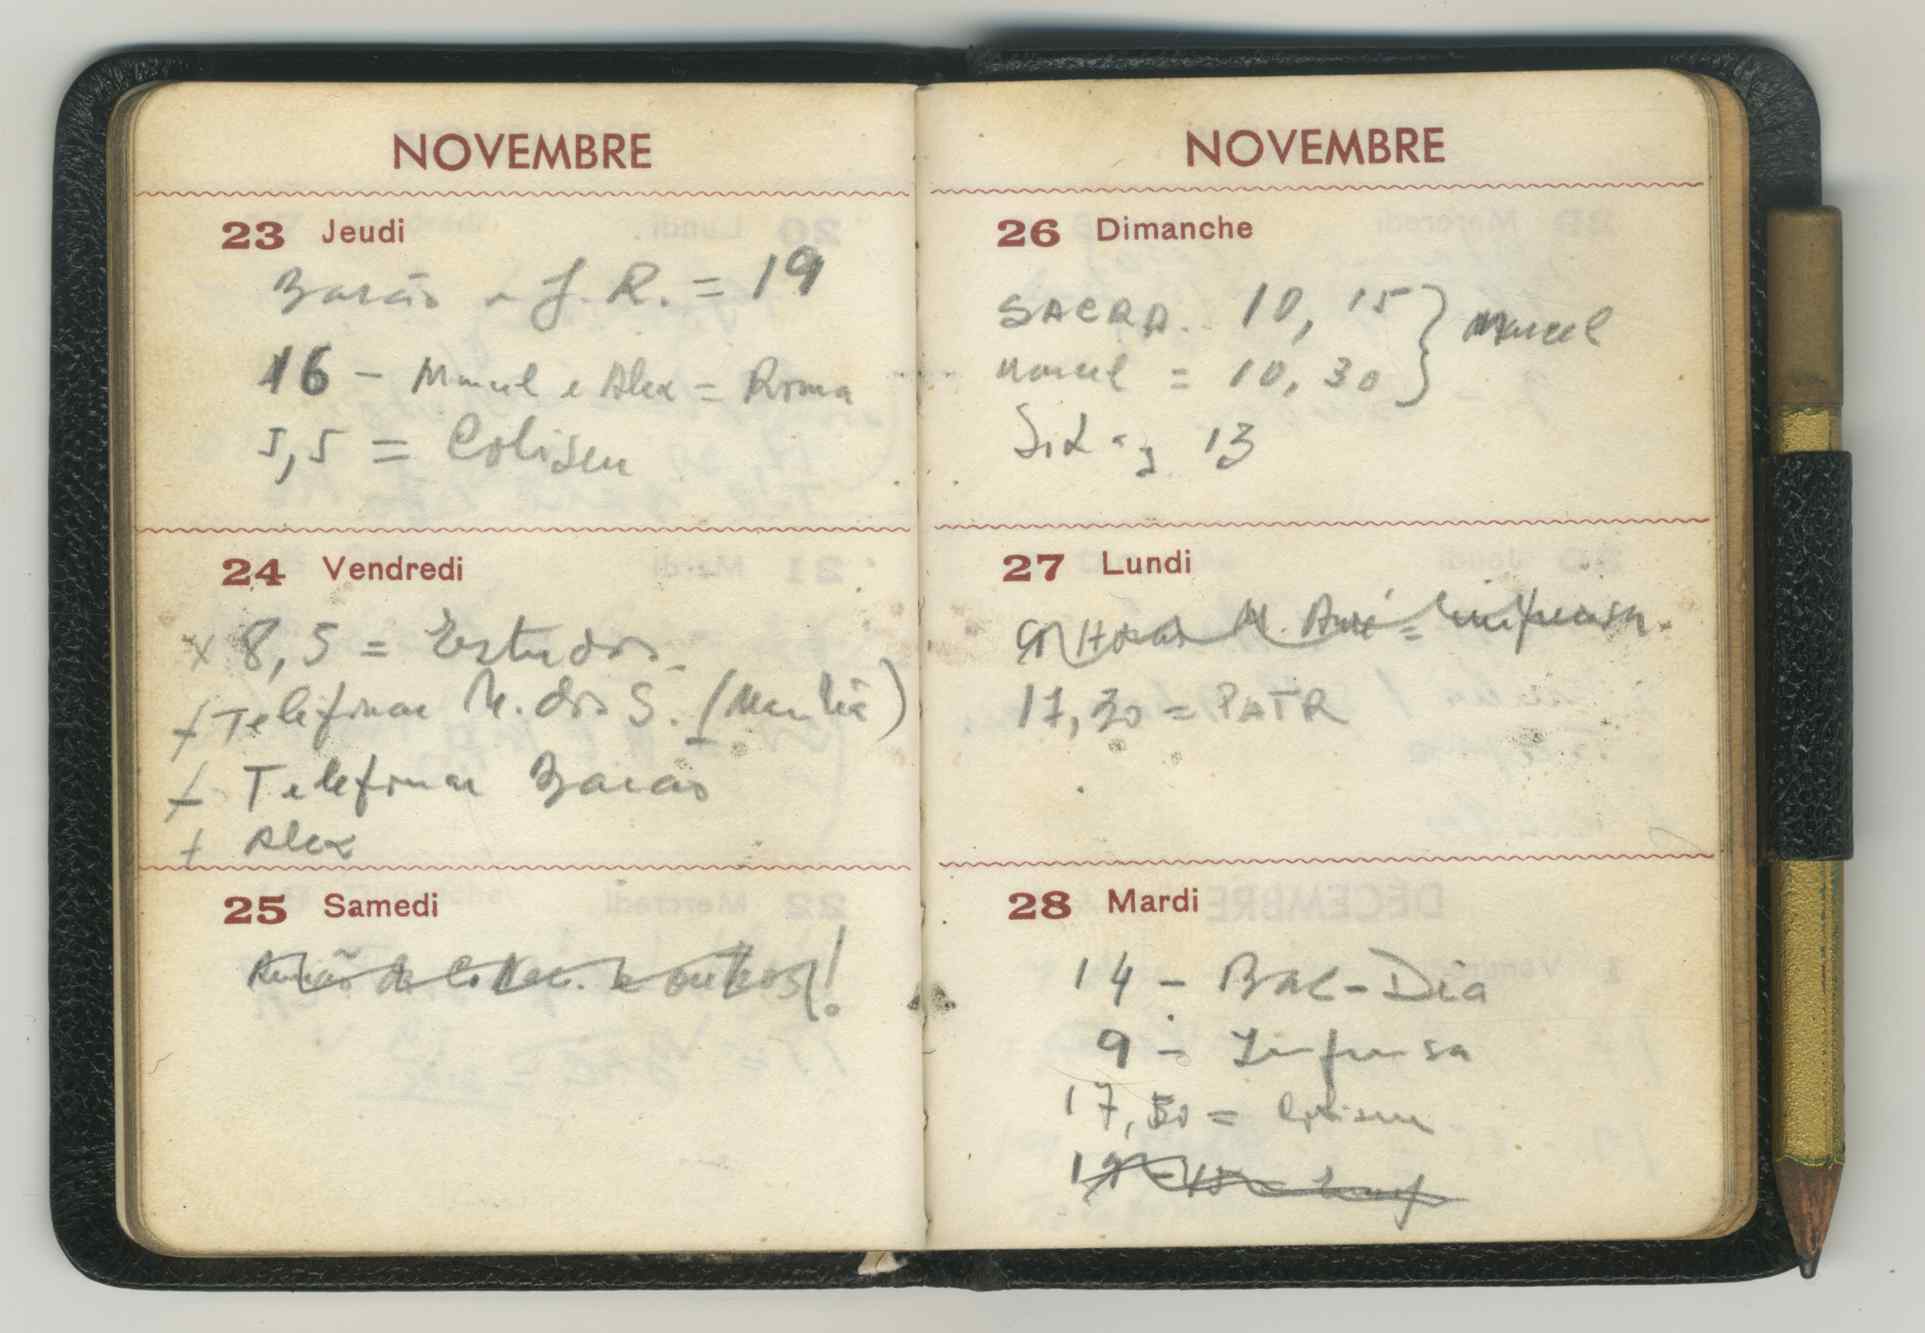 NOVEMBRE
23 Jeudi
Barão - J. R. = 19
16 - Marcel e Alex = Roma
5,5 = Coliseu
24 Vendredi
x 8,5 = Estudos
+ Telefonar M. dos S. (Manhã)
+ Telefonar Barão
+ Alex
25 Samedi
Reunião de outros!
NOVEMBRE
26 Dimanche
SACRA. 10,15 } Marcel
Marcel = 10,30
13
27 Lundi
M. = Imprensa.
17,30 = PATR
28 Mardi
14 - Bac-Dia
9 - Imprensa
17,30 = Coliseu